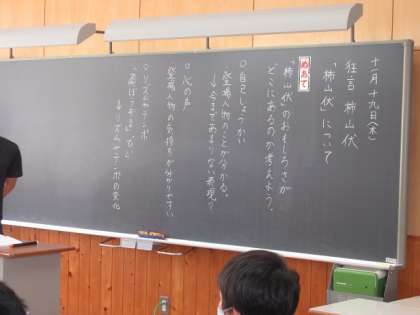 十一月十九日(木)
狂言 柿山伏
「柿山伏」について
めあて
「柿山伏」のおもしろさが
どこにあるのか考えよう。
○自己しょうかい
・登場人物のことが分かる。
↓今まであまりない表現？
○心の声
登場人物の気持ちが分かりやすい
○リズムやテンポ
↓リズムやテンポの変化